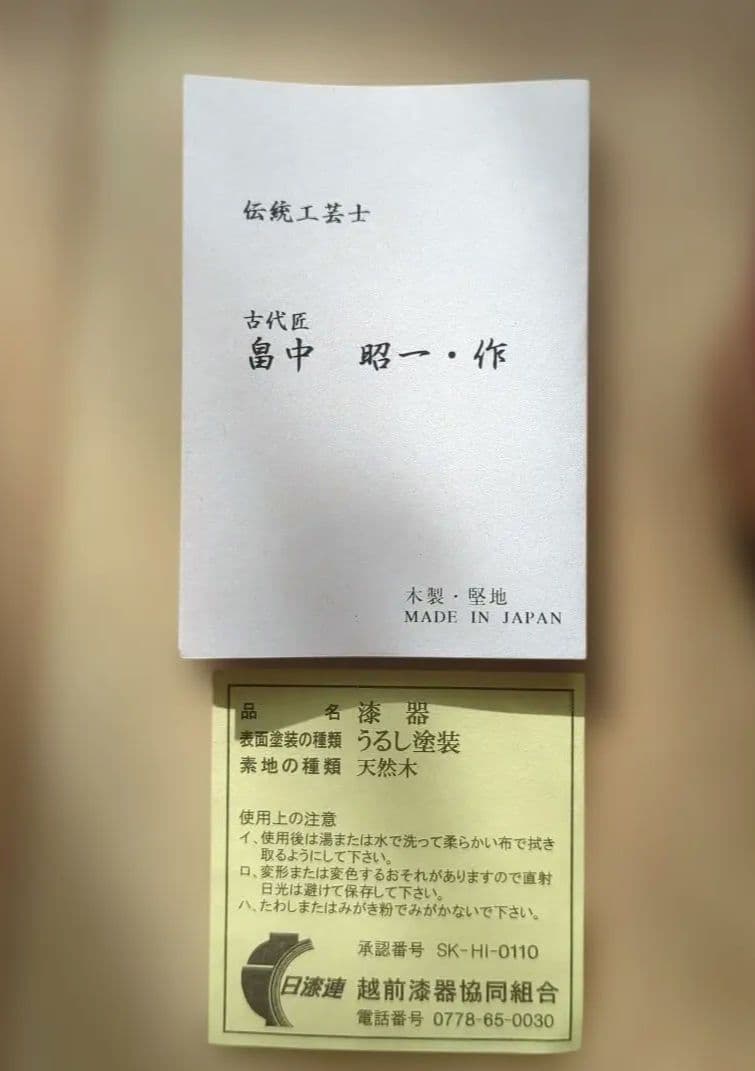 伝統工芸士
古代匠
畠中 昭一・作
木製・堅地
MADE IN JAPAN
品 名 漆 器
表面塗装の種類 うるし塗装
素地の種類 天然木
使用上の注意
イ、使用後は湯または水で洗って柔らかい布で拭き
取るようにして下さい。
ロ、変形または変色するおそれがありますので直射
日光は避けて保存して下さい。
ハ、たわしまたはみがき粉でみがかないで下さい。
承認番号 SK-HI-0110
日漆連 越前漆器協同組合
電話番号 0778-65-0030